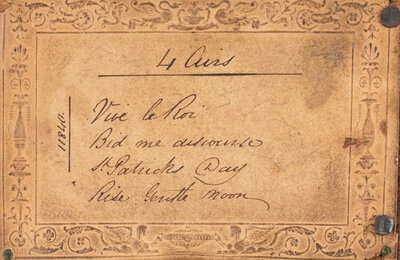 4 Airs
Vive le Roi
Bid me discourse
St Patricks Day
Rise Gentle Moon
11840.